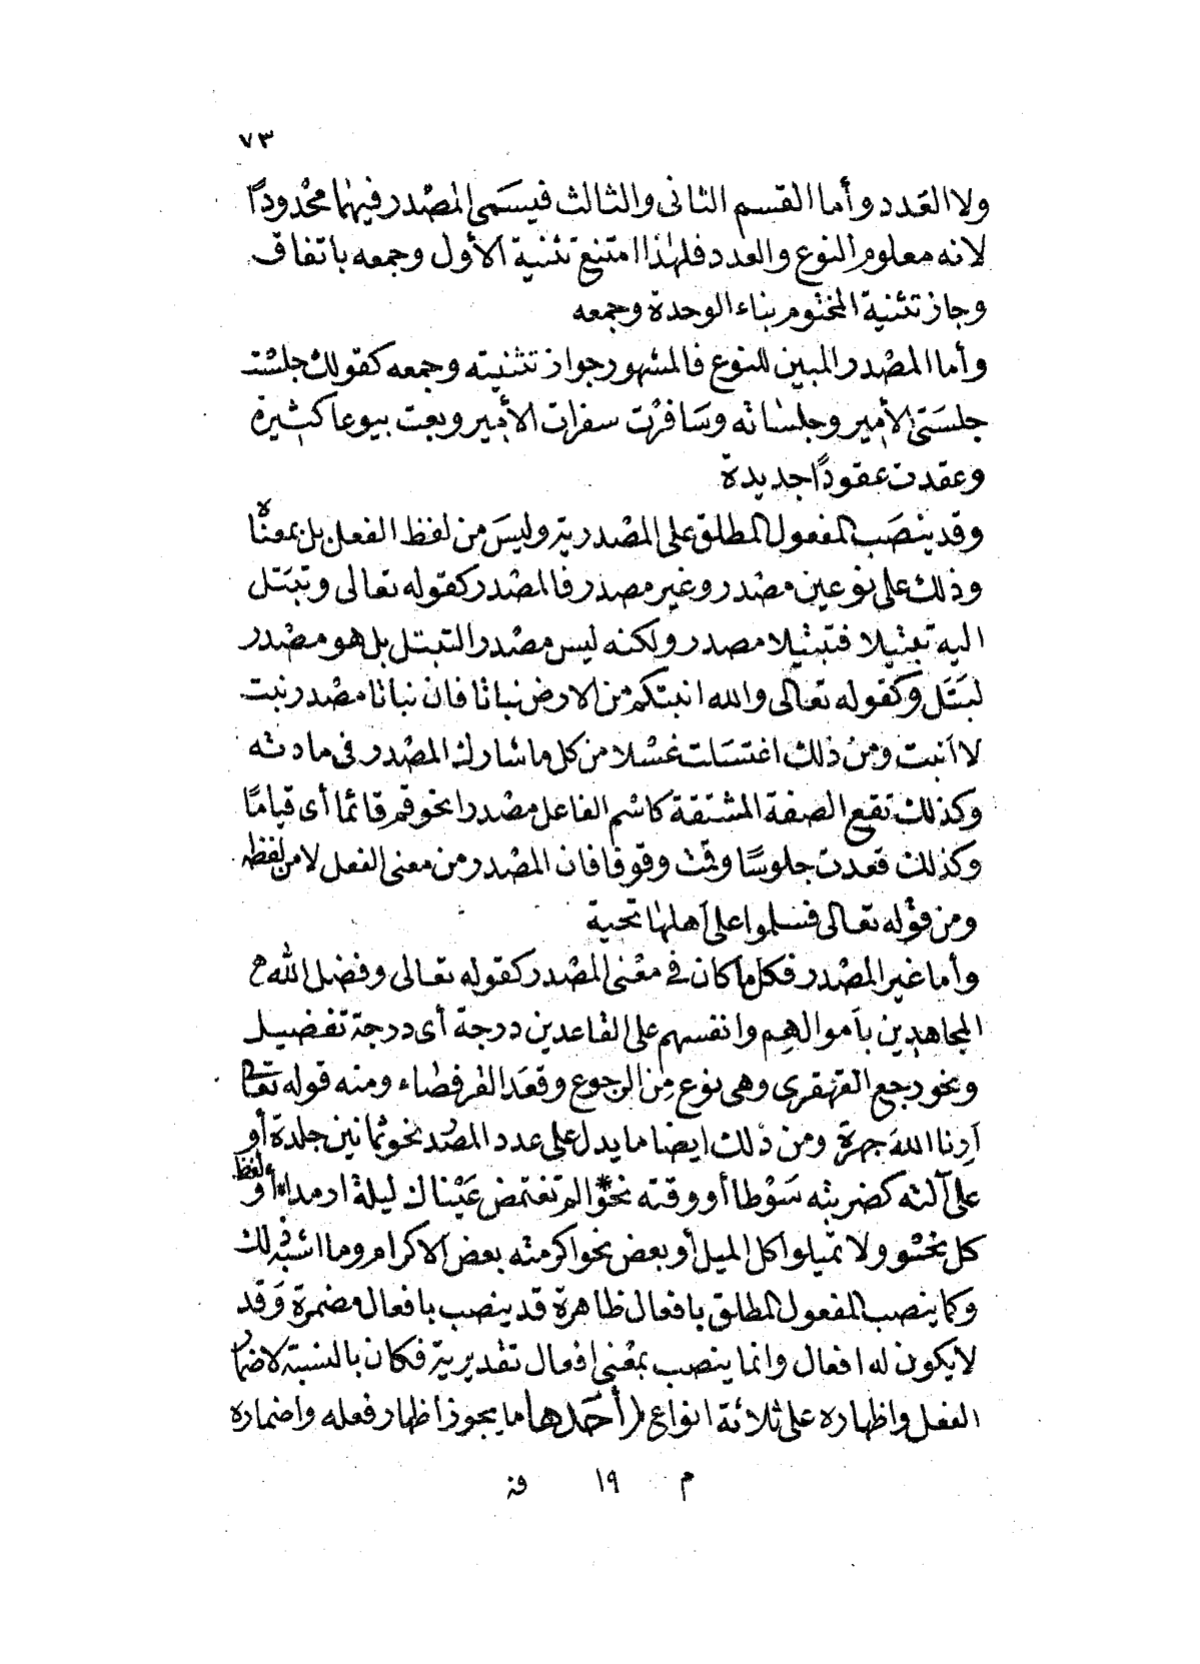 ٧٣
ولا العَدد وأما القسم الثانى والثالث فيسَمى المصْدر فيهما محْدودًا
لانه معلوم النوع والعدد فلهذا امتنع تثنية الأول وجمعه باتفاق
وجاز تثنية المختوم بتاء الوحدة وجمعه
وأما المصْدر المبين للنوع فالمشهور جواز تثنيته وجمعه كقولك جلسْت
جلسَتى الأمير وجلساته وسَافرْت سفرات الأمير وبعت بيوعا كثيرة
وعقدت عقودًا جديدة
وقد ينصَب المفعول المطلق على المصْدرية وليسَ من لفظ الفعل بل بمعناه
وذلك على نوعين مصْدر وغير مصدر فالمصْدر كقوله تعالى وتبَتل
اليه تبتيلا فتبتيلا مصدر ولكنه ليس مصْدر التبتل بل هو مصْدر
لبَتَل وكقوله تعالى والله انبتكم من الارض نباتا فان نباتا مصْدر نبت
لا أنبت ومن ذلك اغتسَلت غسْلا من كل ما شارك المصْدر فى مادته
وكذلك تقع الصفة المشتقة كاسْم الفاعل مصْدرا نحو قم قائما أى قيامًا
وكذلك قعدت جلوسًا وقمْت وقوفا فان المصْدر من معنى الفعل لا من لفظه
ومن قوْله تعالى فسلموا على أهلها تحية
وأما غير المصْدر فكل ما كان فى معْنى المصْدر كقوله تعالى وفضل الله
المجاهدين بأموالهم وانفسهم على القاعدين درجة أى درجة تفضيل
ونحو رجع القهقرى وهى نوع مِن الرجوع وقعَد القرفصَاء ومنه قوله تعَالى
أرنا الله جهرة ومن ذلك ايضا ما يدل على عدد المصْدر نحو ثمانين جلدة أو
على آلته كضربته سَوْطا أو وقته نحو * الم تغتمض عَيْناك ليلة ارمدا * أو لفظ
كل نحْو ولا تميلوا كل الميل أو بعض نحو اكرمته بعض الاكرام وما اشبه ذلك
وكما ينصب المفعول المطلق بافعال ظاهرة قد ينصب بافعال مضمرة وَقد
لا يكون له افعال وانما ينصب بمعْنى افعال تقديرية فكان بالنسبة لاضمار
الفعل واظهاره على ثلاثة انواع (أحَدها) ما يجوز اظهار فعله واضماره
م ١٩